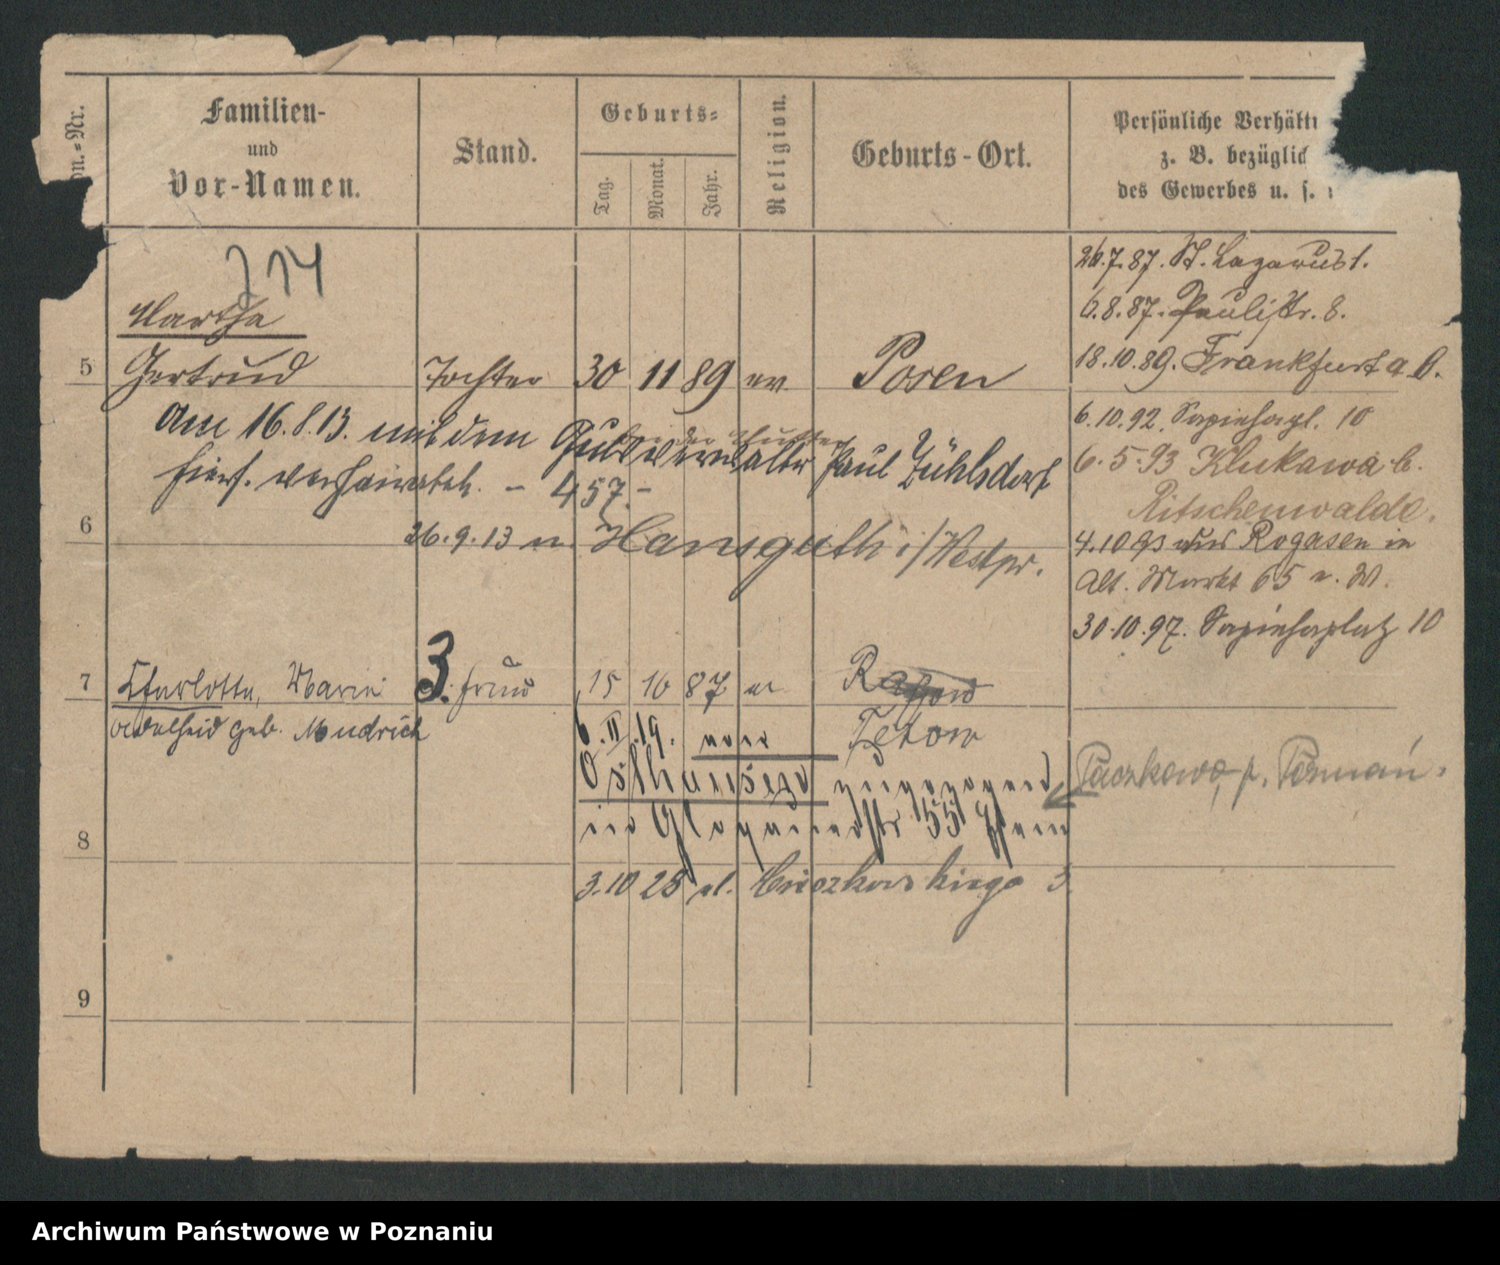 on.=Nr.
Familien-
und
Vor-Namen.
Stand.
Geburts=
Tag.
Monat.
Jahr.
Religion.
Geburts-Ort.
Persönliche Verhält
z. B. bezüglic
des Gewerbes u. s.
714
Martha
5 Gertrud Tochter 30 11 89 ev. Posen
am 16.8.13. mit dem Gutsverwalter Paul Zühlsdorf
hier. verheiratet. – 457. –
6
26.9.13 n. Hansguth i/Westpr.
7 Charlotte, Marie 3. Frau 15 10 87 ev
Adelheid geb. Mudrich
Tetow
6.II.19. von
Osthausego zugezogen
8 in Glogauerstr 55
3.10 25 ul. 3
9
26.7.87. St. Lazarus 1.
6.8.87. Paulistr. 8.
18.10.89. Frankfurt a O.
6.10.92. Sapiehapl. 10
6.5.93 Klukawa b.
Ritschenwalde.
4.10 93 aus Rogasen in
Alt. Markt 65 n. W.
30.10.97. Sapiehaplatz 10
Paczkowo, p. Poznań.
Archiwum Państwowe w Poznaniu